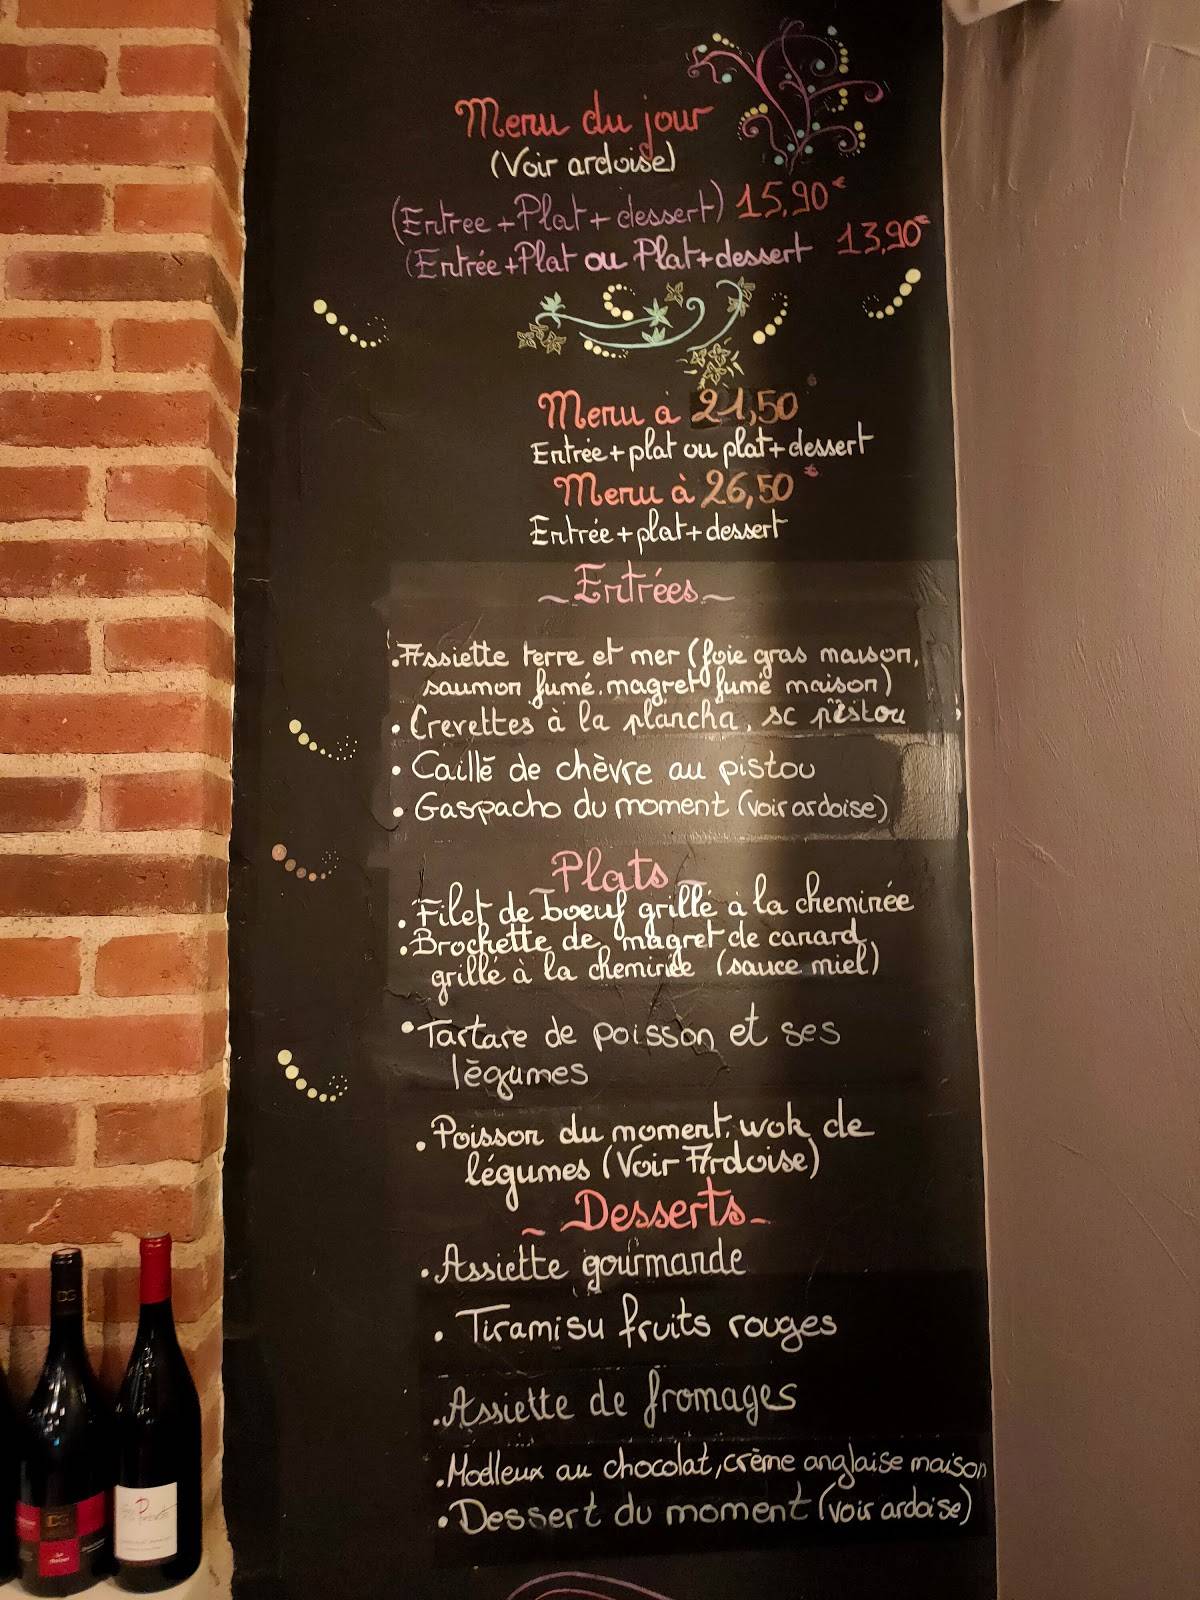 Menu du jour
(Voir ardoise)
(Entree + Plat + dessert) 15,90€
(Entrée+Plat ou Plat+dessert 13,90€
Menu à 21,50 €
Entrée + plat ou plat + dessert
Menu à 26,50 €
Entrée + plat + dessert
~ Entrées ~
. Assiette terre et mer (foie gras maison,
saumon fumé. magret fumé maison)
• Crevettes à la plancha. sc pistou
• Caillé de chèvre au pistou
• Gaspacho du moment (voir ardoise)
_ Plats _
. Filet de boeuf grillé à la cheminée
. Brochette de magret de canard
grillé à la cheminée (sauce miel)
• Tartare de poisson et ses
légumes
. Poisson du moment. wok de
légumes (Voir Ardoise)
~ Desserts ~
. Assiette gourmande
. Tiramisu fruits rouges
. Assiette de fromages
. Moelleux au chocolat, crème anglaise maison
. Dessert du moment (voir ardoise)
DG